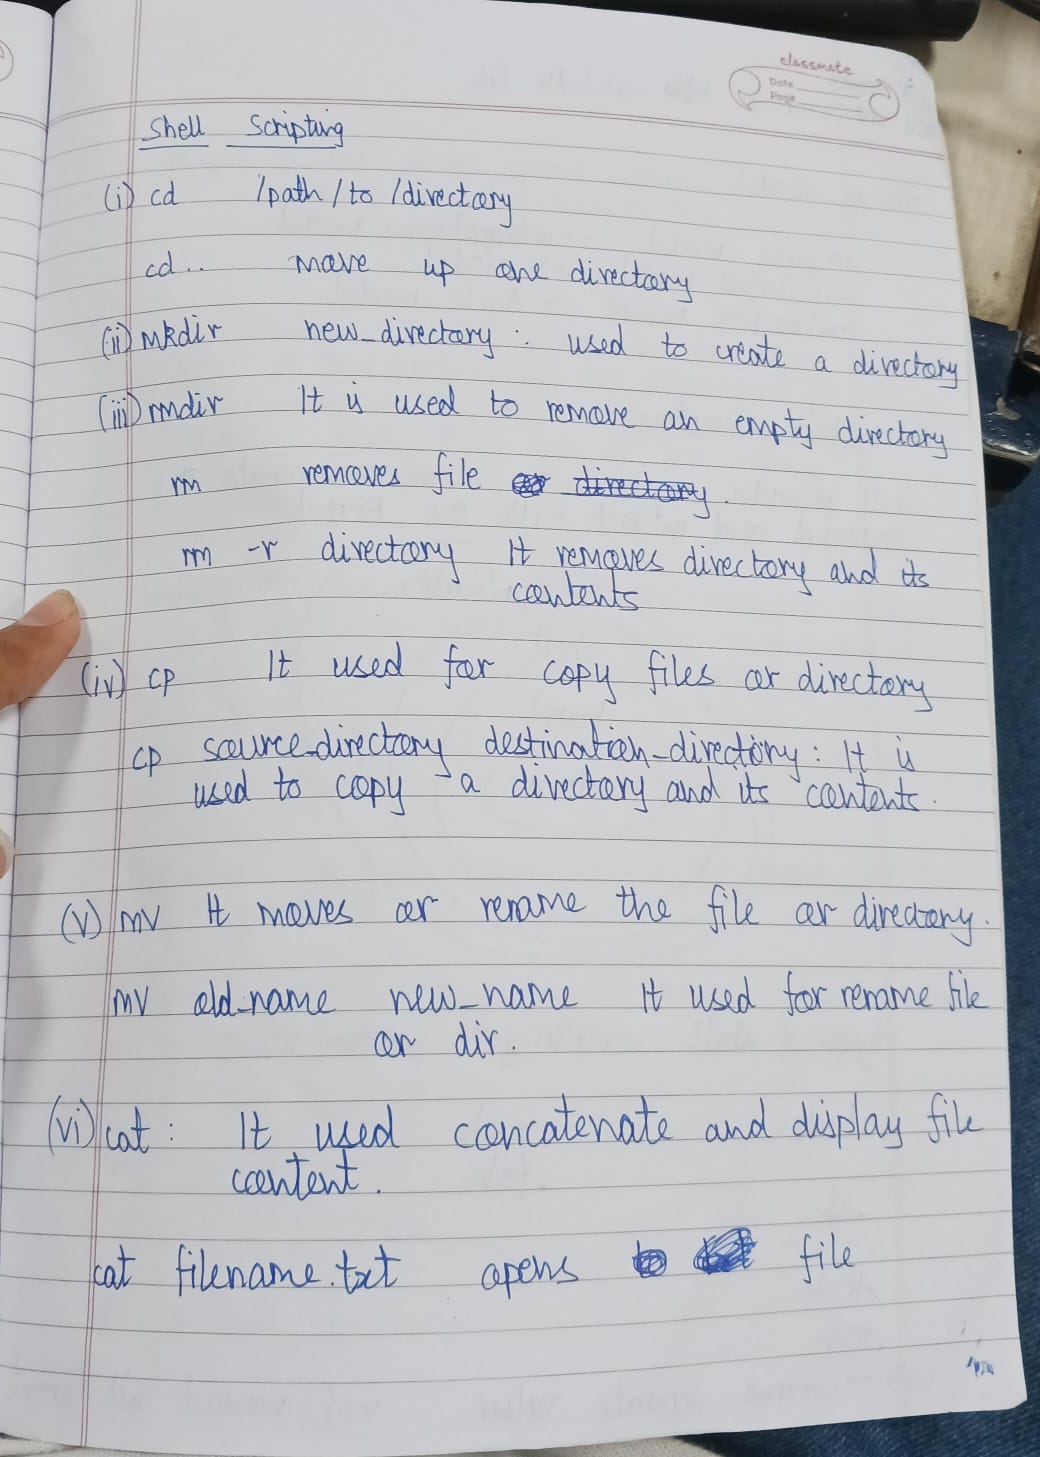 classmate
Date
Page
Shell Scripting
(i) cd /path/to/directory
cd .. move up one directory
(ii) mkdir new_directory : used to create a directory
(iii) rmdir It is used to remove an empty directory
rm removes file or directory.
rm -r directory It removes directory and its
contents
(iv) cp It used for copy files or directory
cp source_directory destination_directory : It is
used to copy a directory and its contents.
(v) mv It moves or rename the file or directory.
mv old_name new_name It used for rename file
or dir.
(vi) cat : It used concatenate and display file
content.
cat filename.txt opens to file